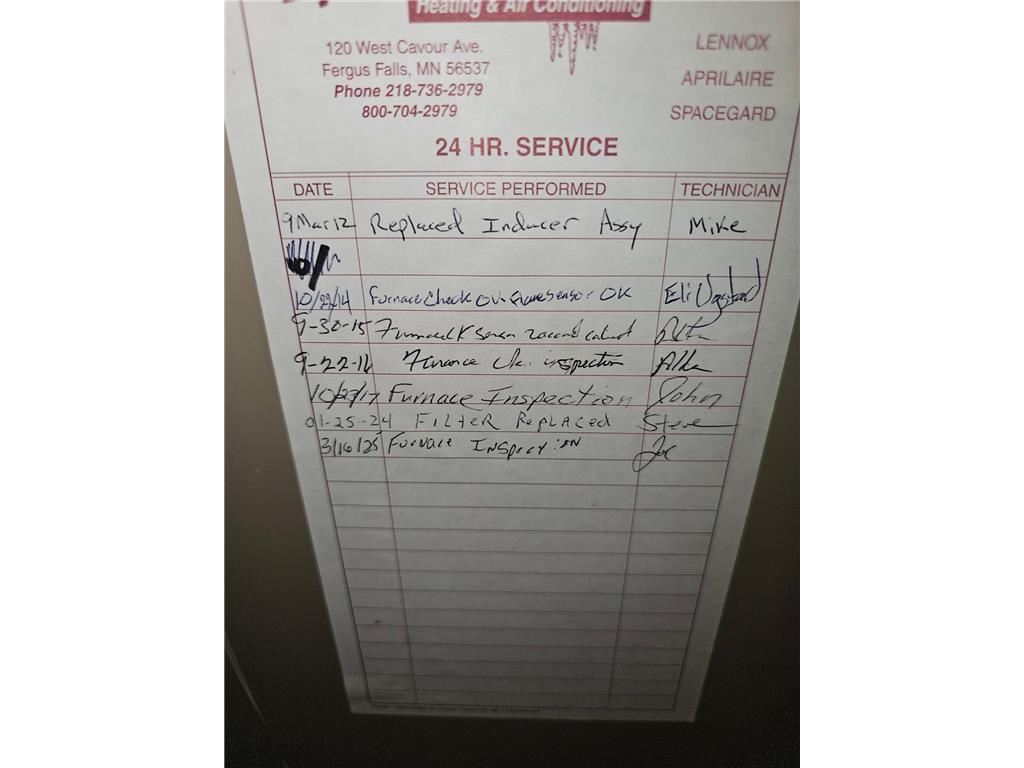 Heating & Air Conditioning
120 West Cavour Ave.
Fergus Falls, MN 56537
Phone 218-736-2979
800-704-2979
LENNOX
APRILAIRE
SPACEGARD
24 HR. SERVICE
DATE SERVICE PERFORMED TECHNICIAN
9 Mar 12 Replaced Inducer Assy Mike
10/22/14 Furnace Check OK Flame Sensor OK Eli
9-30-15
9-22-16 Furnace Ck. inspection
10/27/17 Furnace Inspection John
01-25-24 FILTER REPLACED Steve
3/16/25 Furnace Inspection Joe